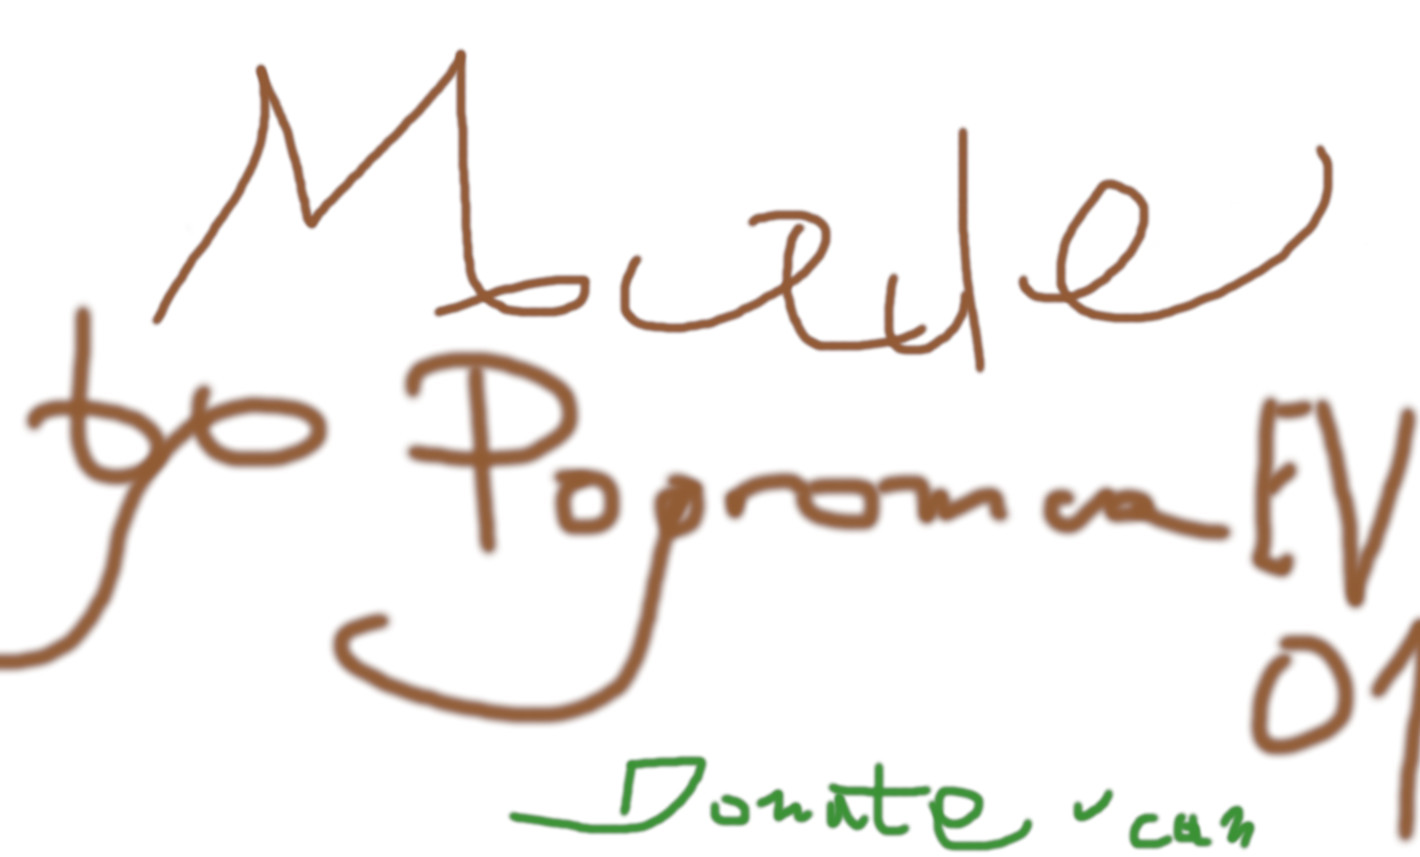 Made
to Pogroma EV
01
Donate can